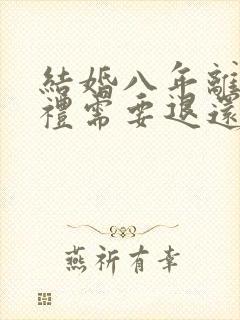 結婚八年離
禮需要退還
燕祈有幸